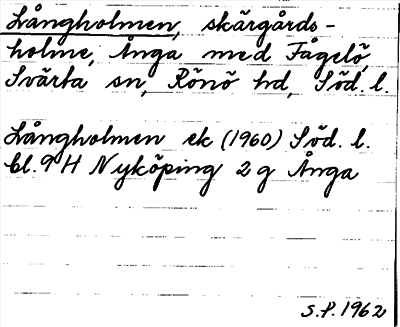 Långholmen, skärgårds-
holme, Ånga med Fågelö,
Svärta sn, Rönö hd, Söd. l.
Långholmen ek (1960) Söd. l.
bl. 9H Nyköping 2g Ånga
S.P. 1962